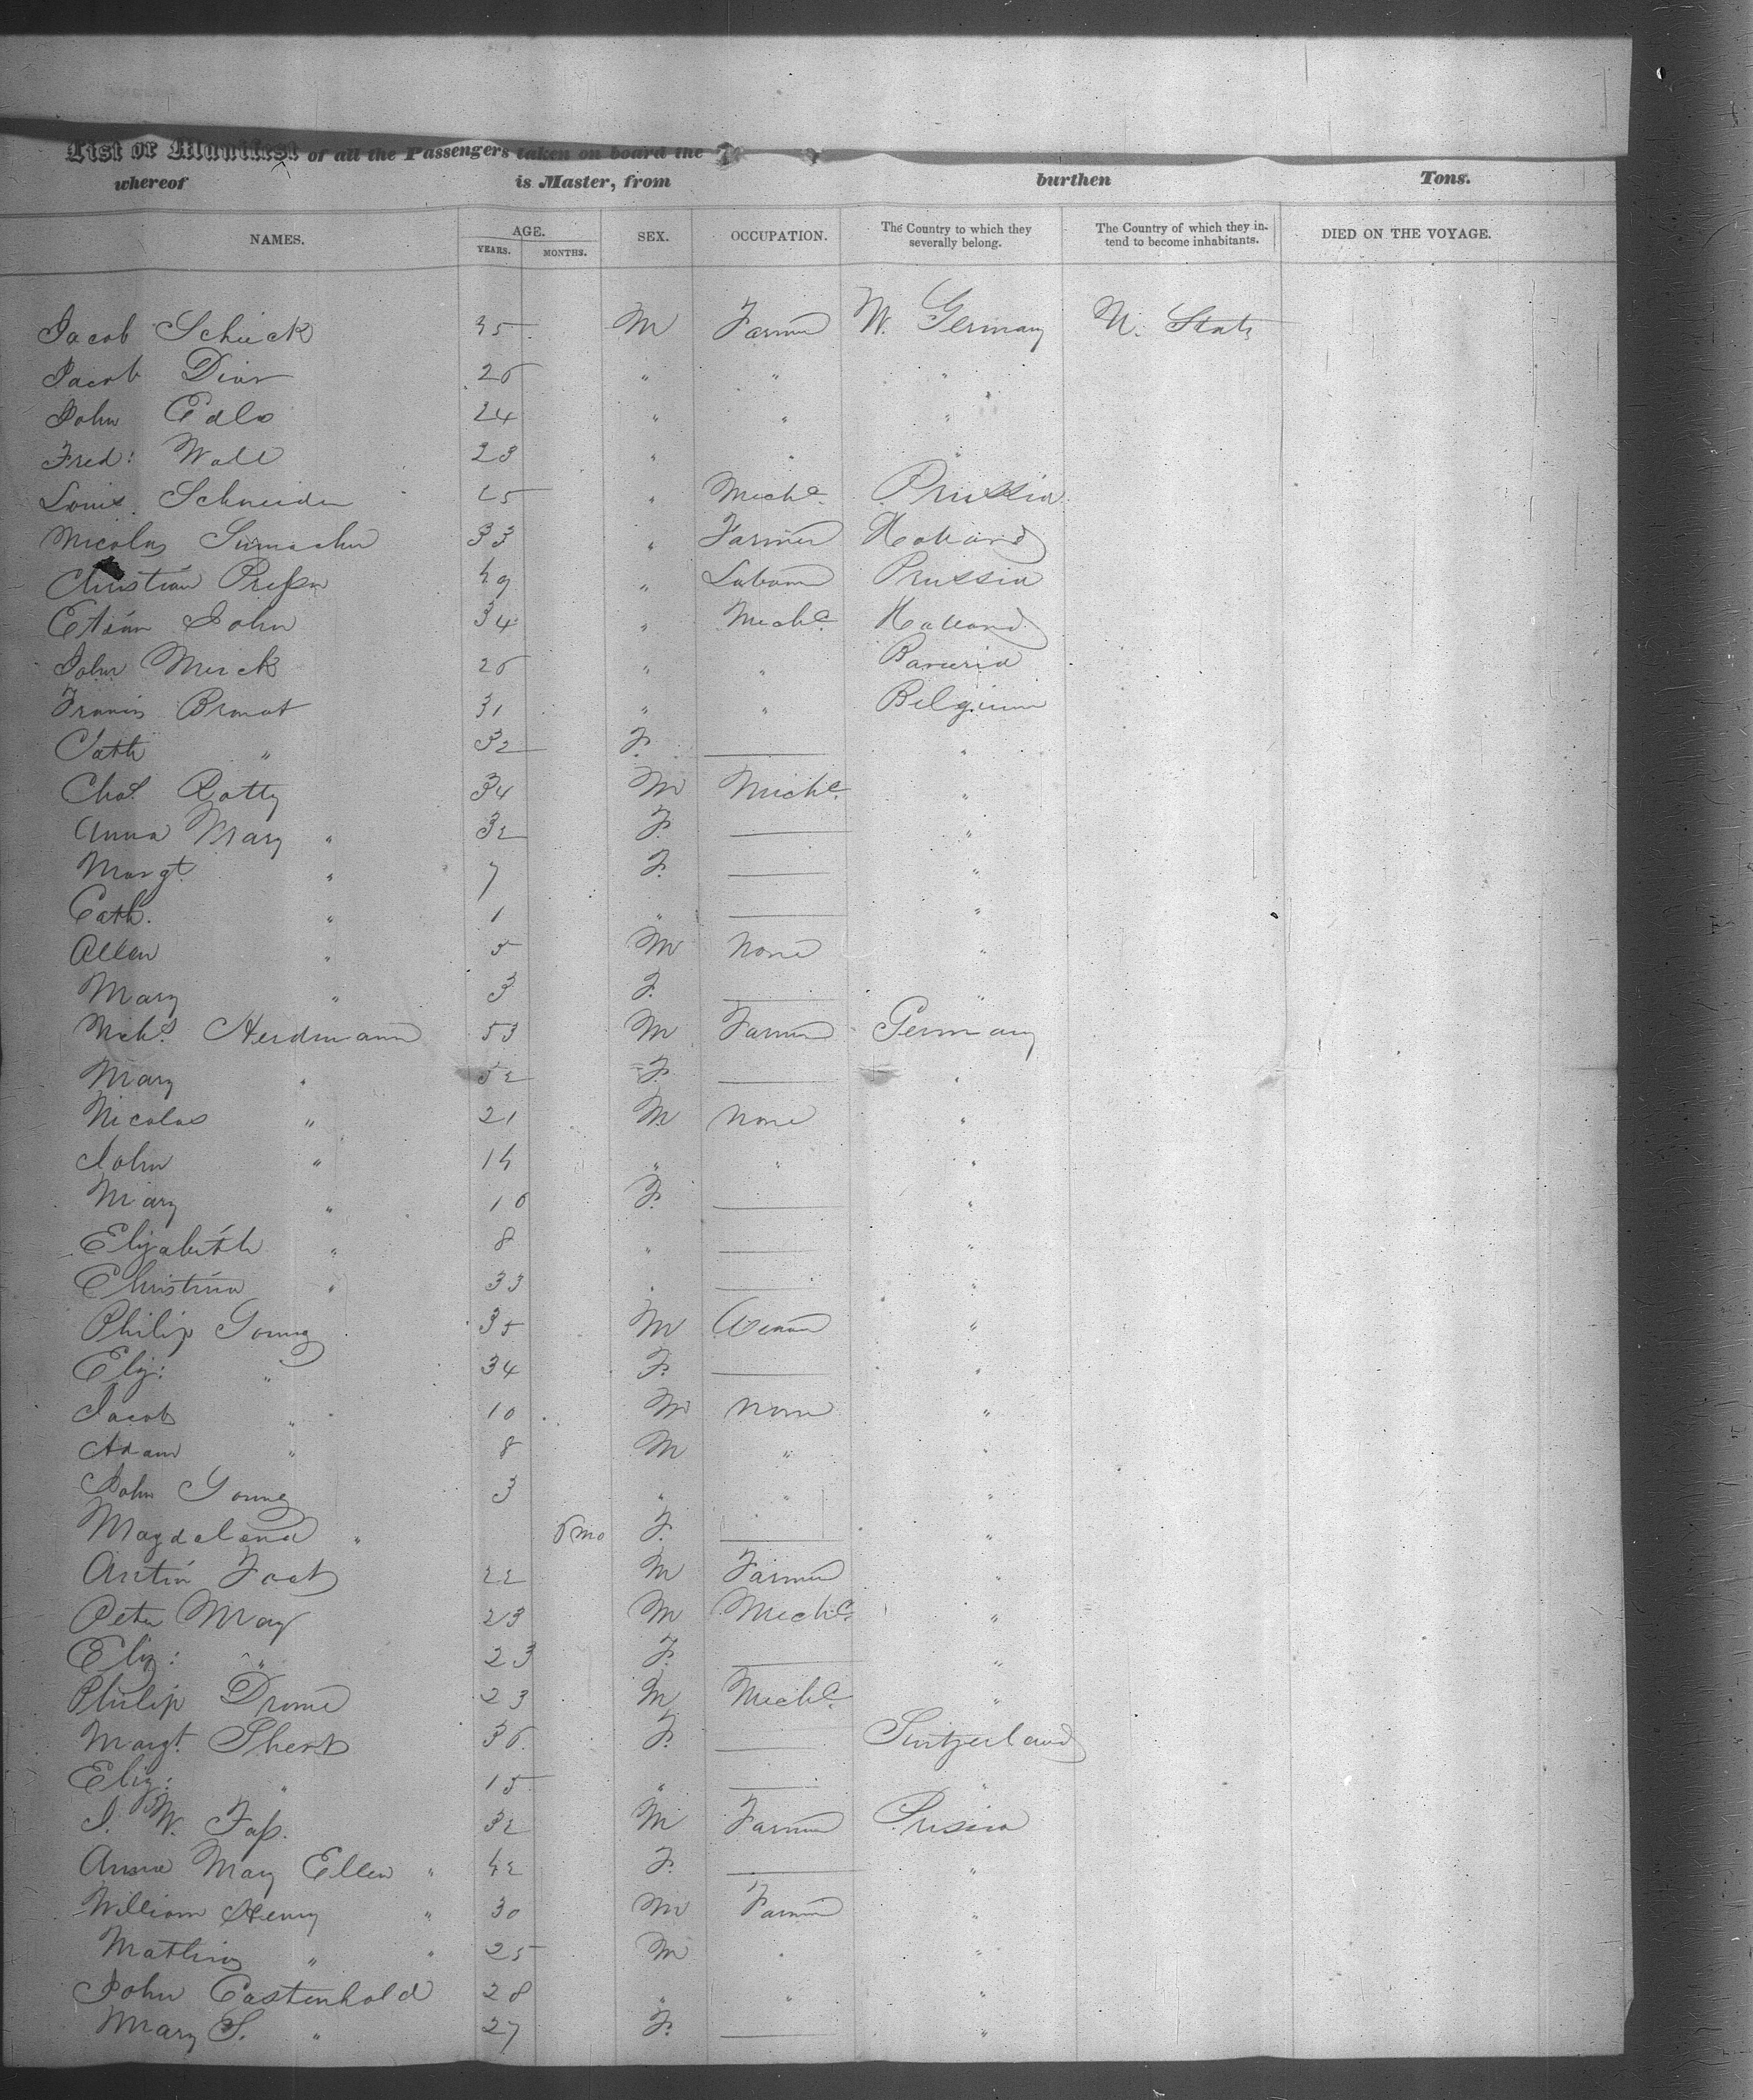 List or Manifest of all the Passengers taken on board the
whereof is Master, from burthen Tons.
NAMES. AGE. SEX. OCCUPATION. The Country to which they severally belong. The Country of which they intend to become inhabitants. DIED ON THE VOYAGE.
YEARS. MONTHS.
Jacob Schuck 35 M Farmer W. Germany U. States
Jacob 26 " " "
John 24 " " "
Fred: Wall 23 " " "
Louis Schneider 25 " Mechc. Prussia
Nicolas 33 " Farmer Holland
Christian 49 " Prussia
John 34 " Mechc. Holland
John Merck 26 " " Bavaria
Francis 31 " " Belgium
Cath " 32 F. — "
Chas. Rotty 34 M Mechc. "
Anna Mary " 32 F. — "
Margt. " 7 F. — "
Cath. " 1 " — "
Allen " 5 M None "
Mary " 3 F. — "
Nichs. Herdmann 53 M Farmer Germany
Mary " 52 F. — "
Nicolas " 21 M None "
John " 14 " " "
Mary " 16 F. — "
Elizabeth " 8 " — "
Christina " 33 " — "
Philip Young 35 M "
Eliz: " 34 F. — "
Jacob " 10 M None "
Adam " 8 M " "
John Young 3 " " "
Magdalena " 6 mo F. — "
22 M Farmer "
Peter May 23 M Mechc. "
Eliz: " 23 F. — "
Philip Drome 23 M Mechc. "
Margt. 36 F. — Switzerland
Eliz: " 15 " — "
J. W. Faſs. 32 M Farmer Prussia
Anna Mary Ellen " 42 F. — "
William Henry " 30 M Farmer "
Mathias " " 25 M " "
John Castenhold 28 " " "
Mary S. " 27 F. — "